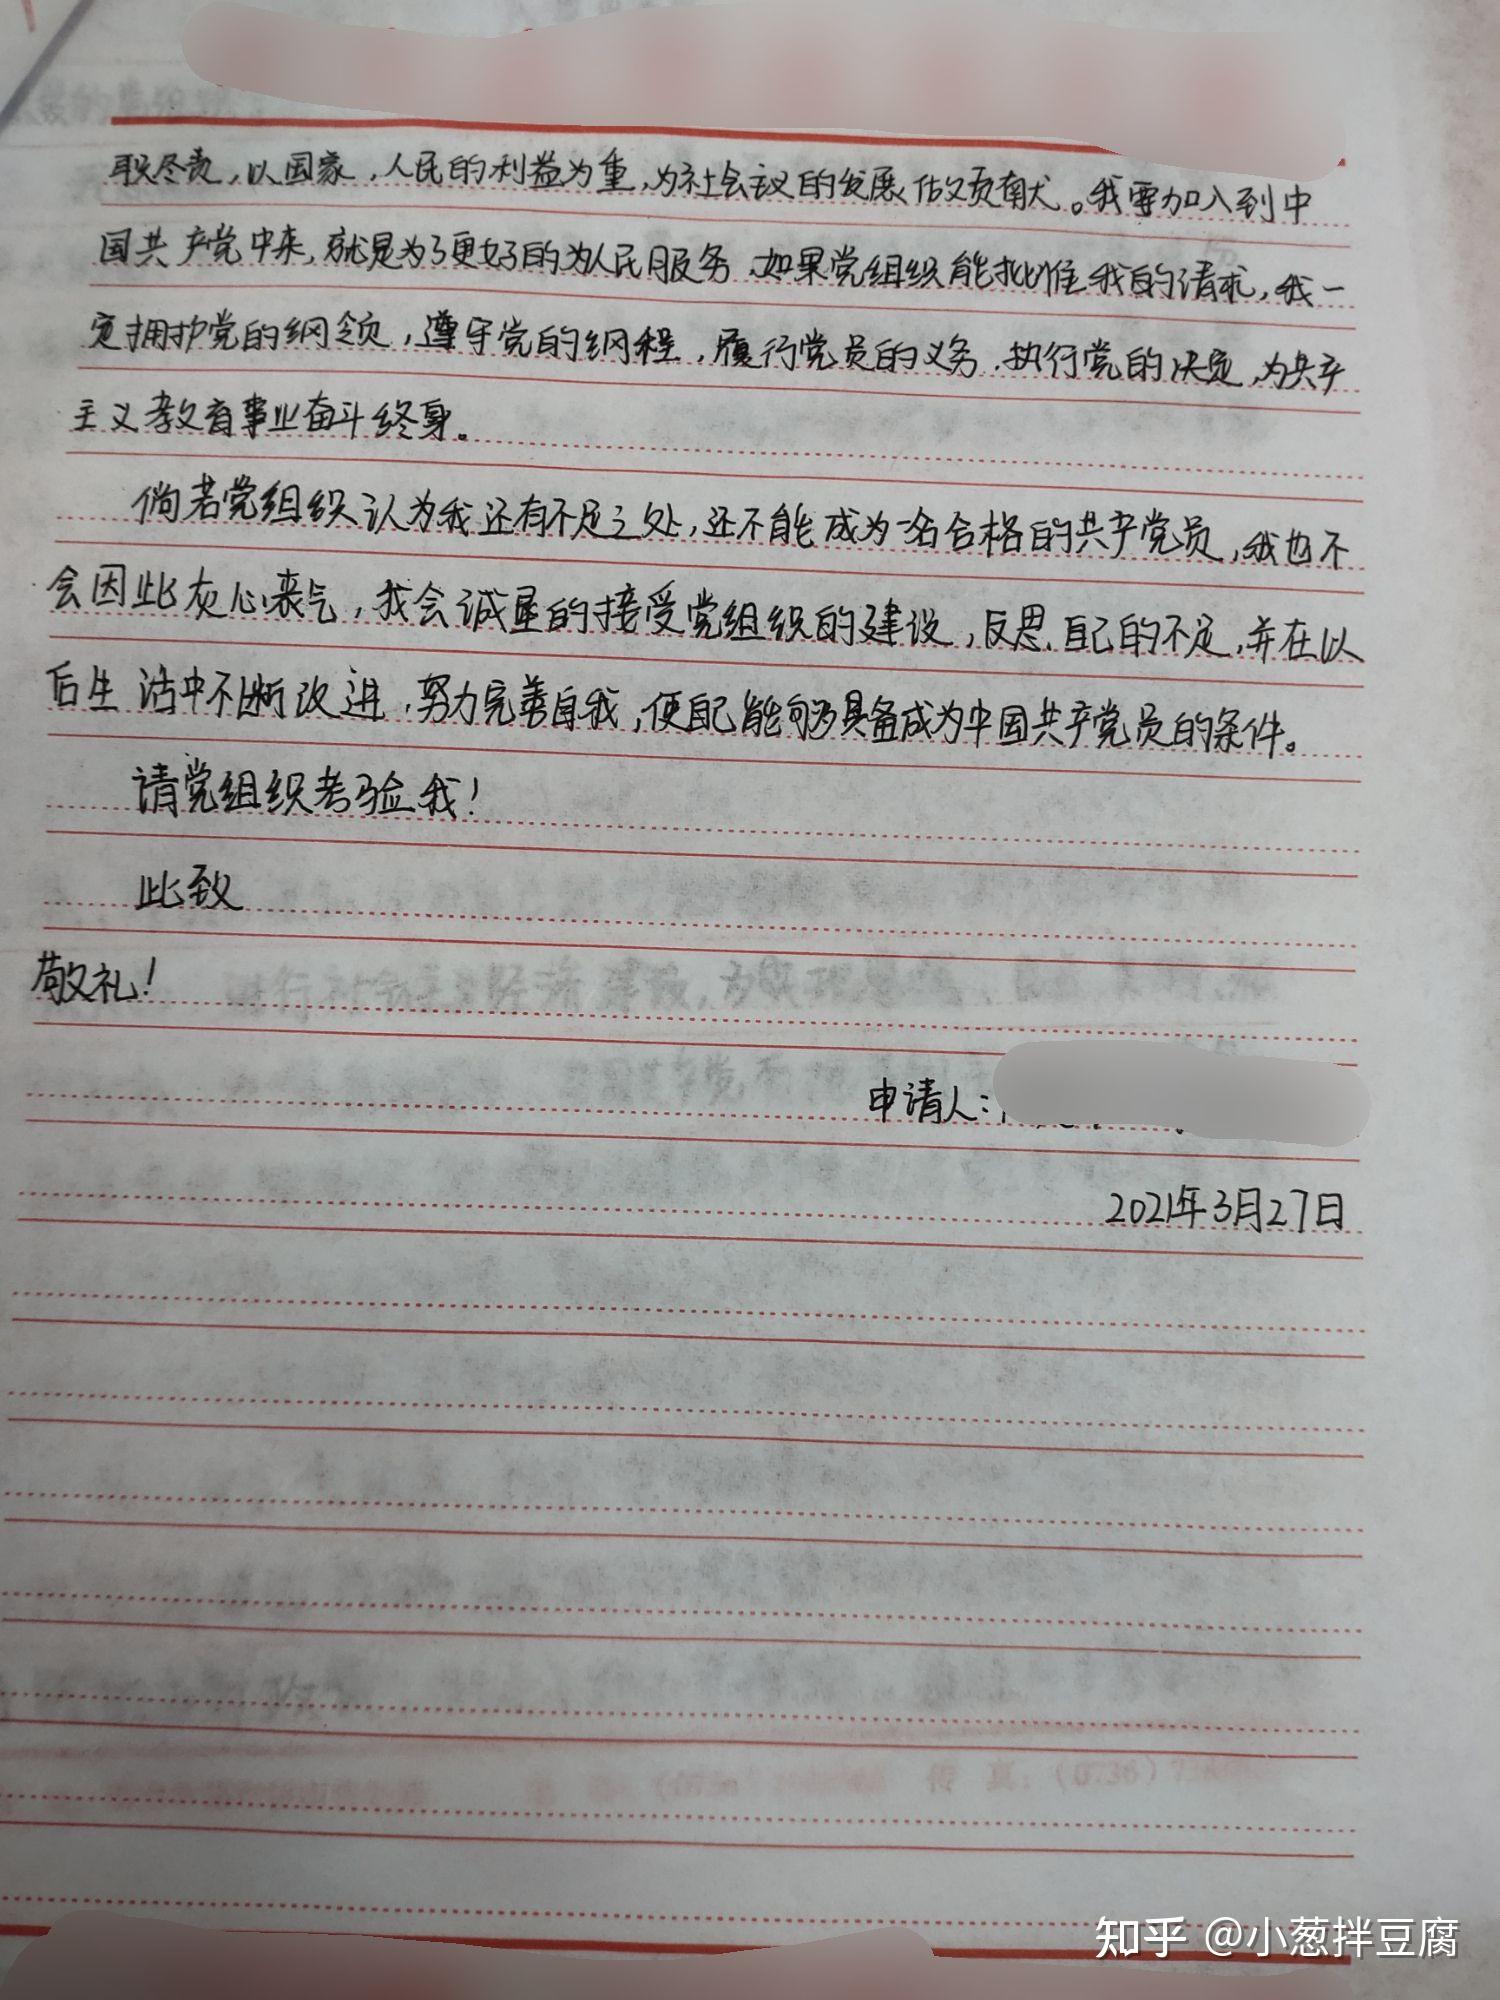 职尽责，以国家，人民的利益为重，为社会主义的发展做贡献。我要加入到中
国共产党中来，就是为了更好的为人民服务，如果党组织能批准我的请求，我一
定拥护党的纲领，遵守党的纲程，履行党员的义务，执行党的决定，为共产
主义教育事业奋斗终身。
倘若党组织认为我还有不足之处，还不能成为一名合格的共产党员，我也不
会因此灰心丧气，我会诚恳的接受党组织的建议，反思自己的不足，并在以
后生活中不断改进，努力完善自我，使自己能够具备成为中国共产党员的条件。
请党组织考验我！
此致
敬礼！
申请人：
2021年3月27日
传 真：(0736)
知乎 @小葱拌豆腐